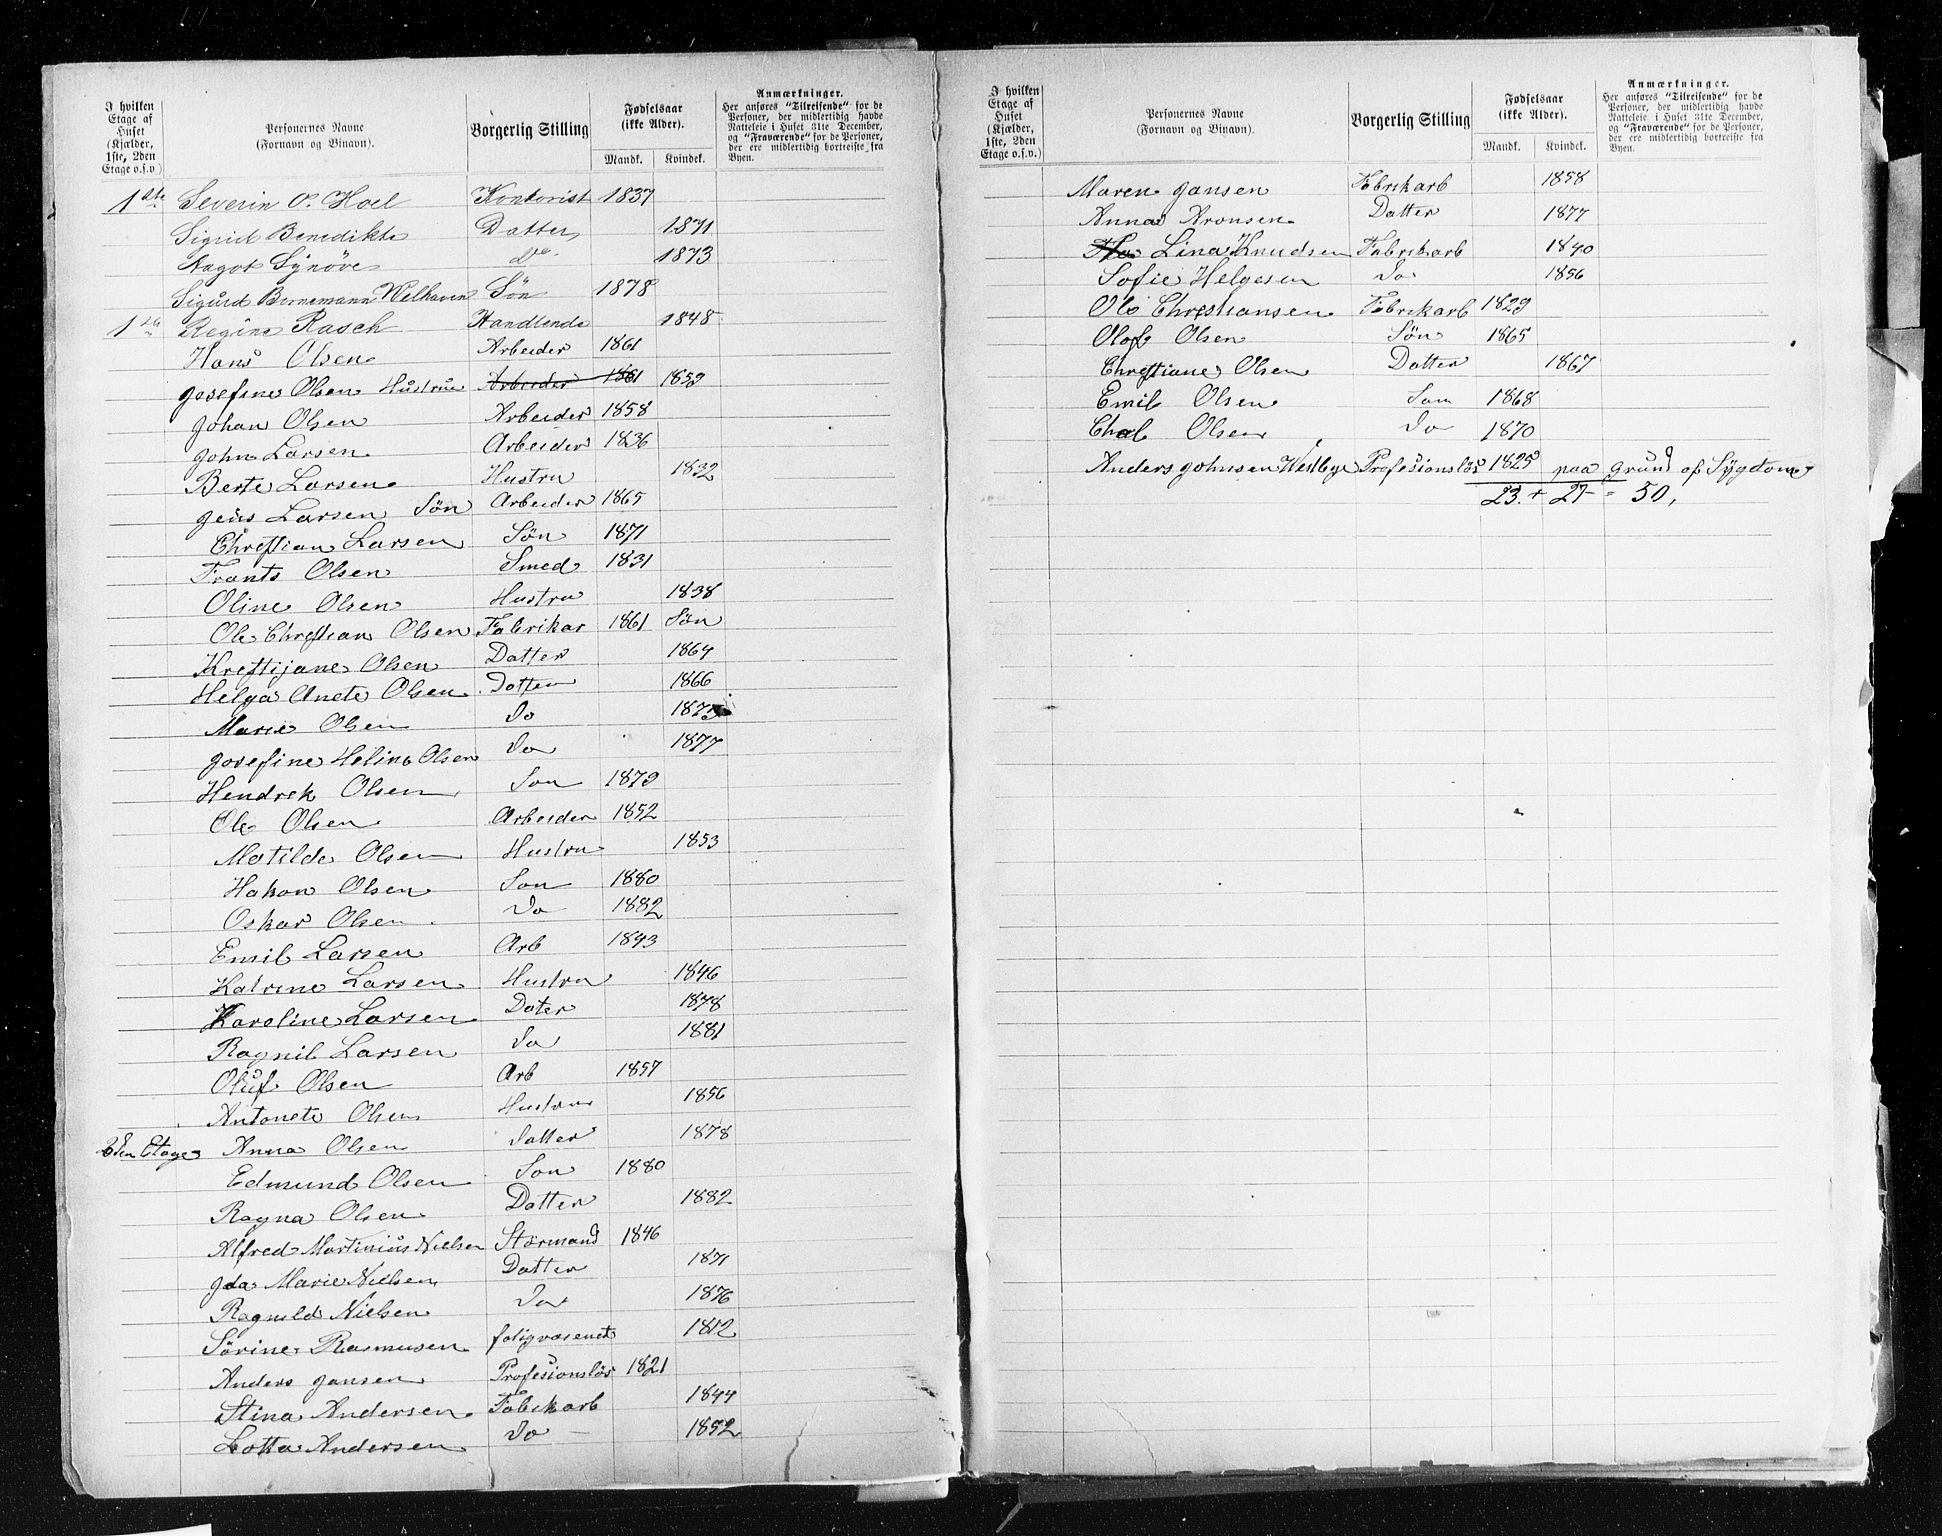 I hvilken Etage af Huset (Kjælder, 1ste, 2den Etage o.s.v)
Personernes Navne (Fornavn og Binavn).
Borgerlig Stilling
Fødselsaar (ikke Alder).
Mandk. Kvindek.
Anmærkninger.
Her anføres "Tilreisende" for de Personer, der midlertidig havde Natteleie i Huset 31te December, og "Fraværende" for de Personer, der ere midlertidig bortreiste fra Byen.
1ste Severin O. Hoel Kontorist 1837
Sigrid Benedikte Datter 1871
Aagot Synøve Do 1873
Sigurd Bernemann Welhaven Søn 1878
1ste Regine Rasch Handlende 1848
Hans Olsen Arbeider 1861
Josefine Olsen Hustrue Arbeider 1861 1859
Johan Olsen Arbeider 1858
John Larsen Arbeider 1836
Berte Larsen Hustru 1832
Jens Larsen Søn Arbeider 1865
Christian Larsen Søn 1871
Frants Olsen Smed 1831
Oline Olsen Hustru 1838
Ole Christian Olsen Fabrikar 1861 Søn
Kristijane Olsen Datter 1864
Helga Anete Olsen Datter 1866
Marie Olsen Do 1875
Josefine Heline Olsen Do 1877
Hendrek Olsen Søn 1879
Ole Olsen Arbeider 1852
Matilde Olsen Hustru 1853
Hakon Olsen Son 1880
Oskar Olsen Do 1882
Emil Larsen Arb 1843
Katrine Larsen Hustru 1846
Karoline Larsen Dater 1878
Ragnil Larsen Do 1881
Oluf Olsen Arb 1857
Antonete Olsen Hustru 1856
2den Etage Anna Olsen Datter 1878
Edmund Olsen Son 1880
Ragna Olsen Datter 1882
Alfred Martinius Nielsen Stormand 1846
Jda Marie Nielsen Datter 1871
Ragnild Nielsen Do 1876
Sørine Rasmusen fatigvæsenet 1812
Anders Jansen Profesionsløs 1821
Stina Andersen Fabrikarb 1844
Lotta Andersen Do 1852
I hvilken Etage af Huset (Kjælder, 1ste, 2den Etage o.s.v.)
Personernes Navne (Fornavn og Binavn).
Borgerlig Stilling
Fødselsaar (ikke Alder).
Mandk. Kvindek.
Anmærkninger.
Her anføres "Tilreisende" for de Personer, der midlertidig havde Natteleie i Huset 31te December, og "Fraværende" for de Personer, der ere midlertidig bortreiste fra Byen.
Maren Jansen Fabrikarb 1858
Anna Aronsen Datter 1877
Lina Knudsen Fabrikarb 1840
Sofie Helgesen Do 1856
Ole Christiansen Fabrikarb 1829
Olof Olsen Søn 1865
Christiane Olsen Datter 1867
Emil Olsen Søn 1868
Olsen Do 1870
Anders Johnsen Westbye Profesionsløs 1825 paa Grund af Sygdom
23 + 27 = 50,